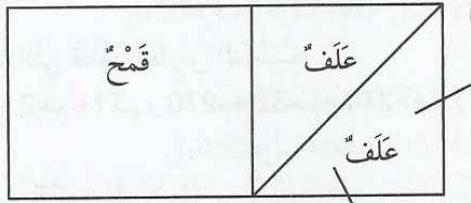 قَمْحٌ
عَلَفٌ
عَلَفٌ